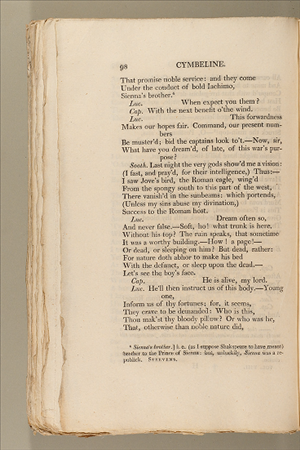 98 CYMBELINE.
That promise noble service: and they come
Under the conduct of bold Iachimo,
Sienna's brother.⁸
Luc. When expect you them?
Cap. With the next benefit o'the wind.
Luc. This forwardness
Makes our hopes fair. Command, our present num-
bers
Be muster'd; bid the captains look to't.—Now, sir,
What have you dream'd, of late, of this war's pur-
pose?
Sooth. Last night the very gods show'd me a vision:
(I fast, and pray'd, for their intelligence,) Thus:—
I saw Jove's bird, the Roman eagle, wing'd
From the spongy south to this part of the west,
There vanish'd in the sunbeams: which portends,
(Unless my sins abuse my divination,)
Success to the Roman host.
Luc. Dream often so,
And never false.—Soft, ho! what trunk is here,
Without his top? The ruin speaks, that sometime
It was a worthy building.—How! a page!—
Or dead, or sleeping on him? But dead, rather:
For nature doth abhor to make his bed
With the defunct, or sleep upon the dead.—
Let's see the boy's face.
Cap. He is alive, my lord.
Luc. He'll then instruct us of this body.—Young
one,
Inform us of thy fortunes; for, it seems,
They crave to be demanded: Who is this,
Thou mak'st thy bloody pillow? Or who was he,
That, otherwise than noble nature did,
⁸ Sienna's brother.] i. e. (as I suppose Shakspeare to have meant)
brother to the Prince of Sienna: but, unluckily, Sienna was a re-
publick. STEEVENS.